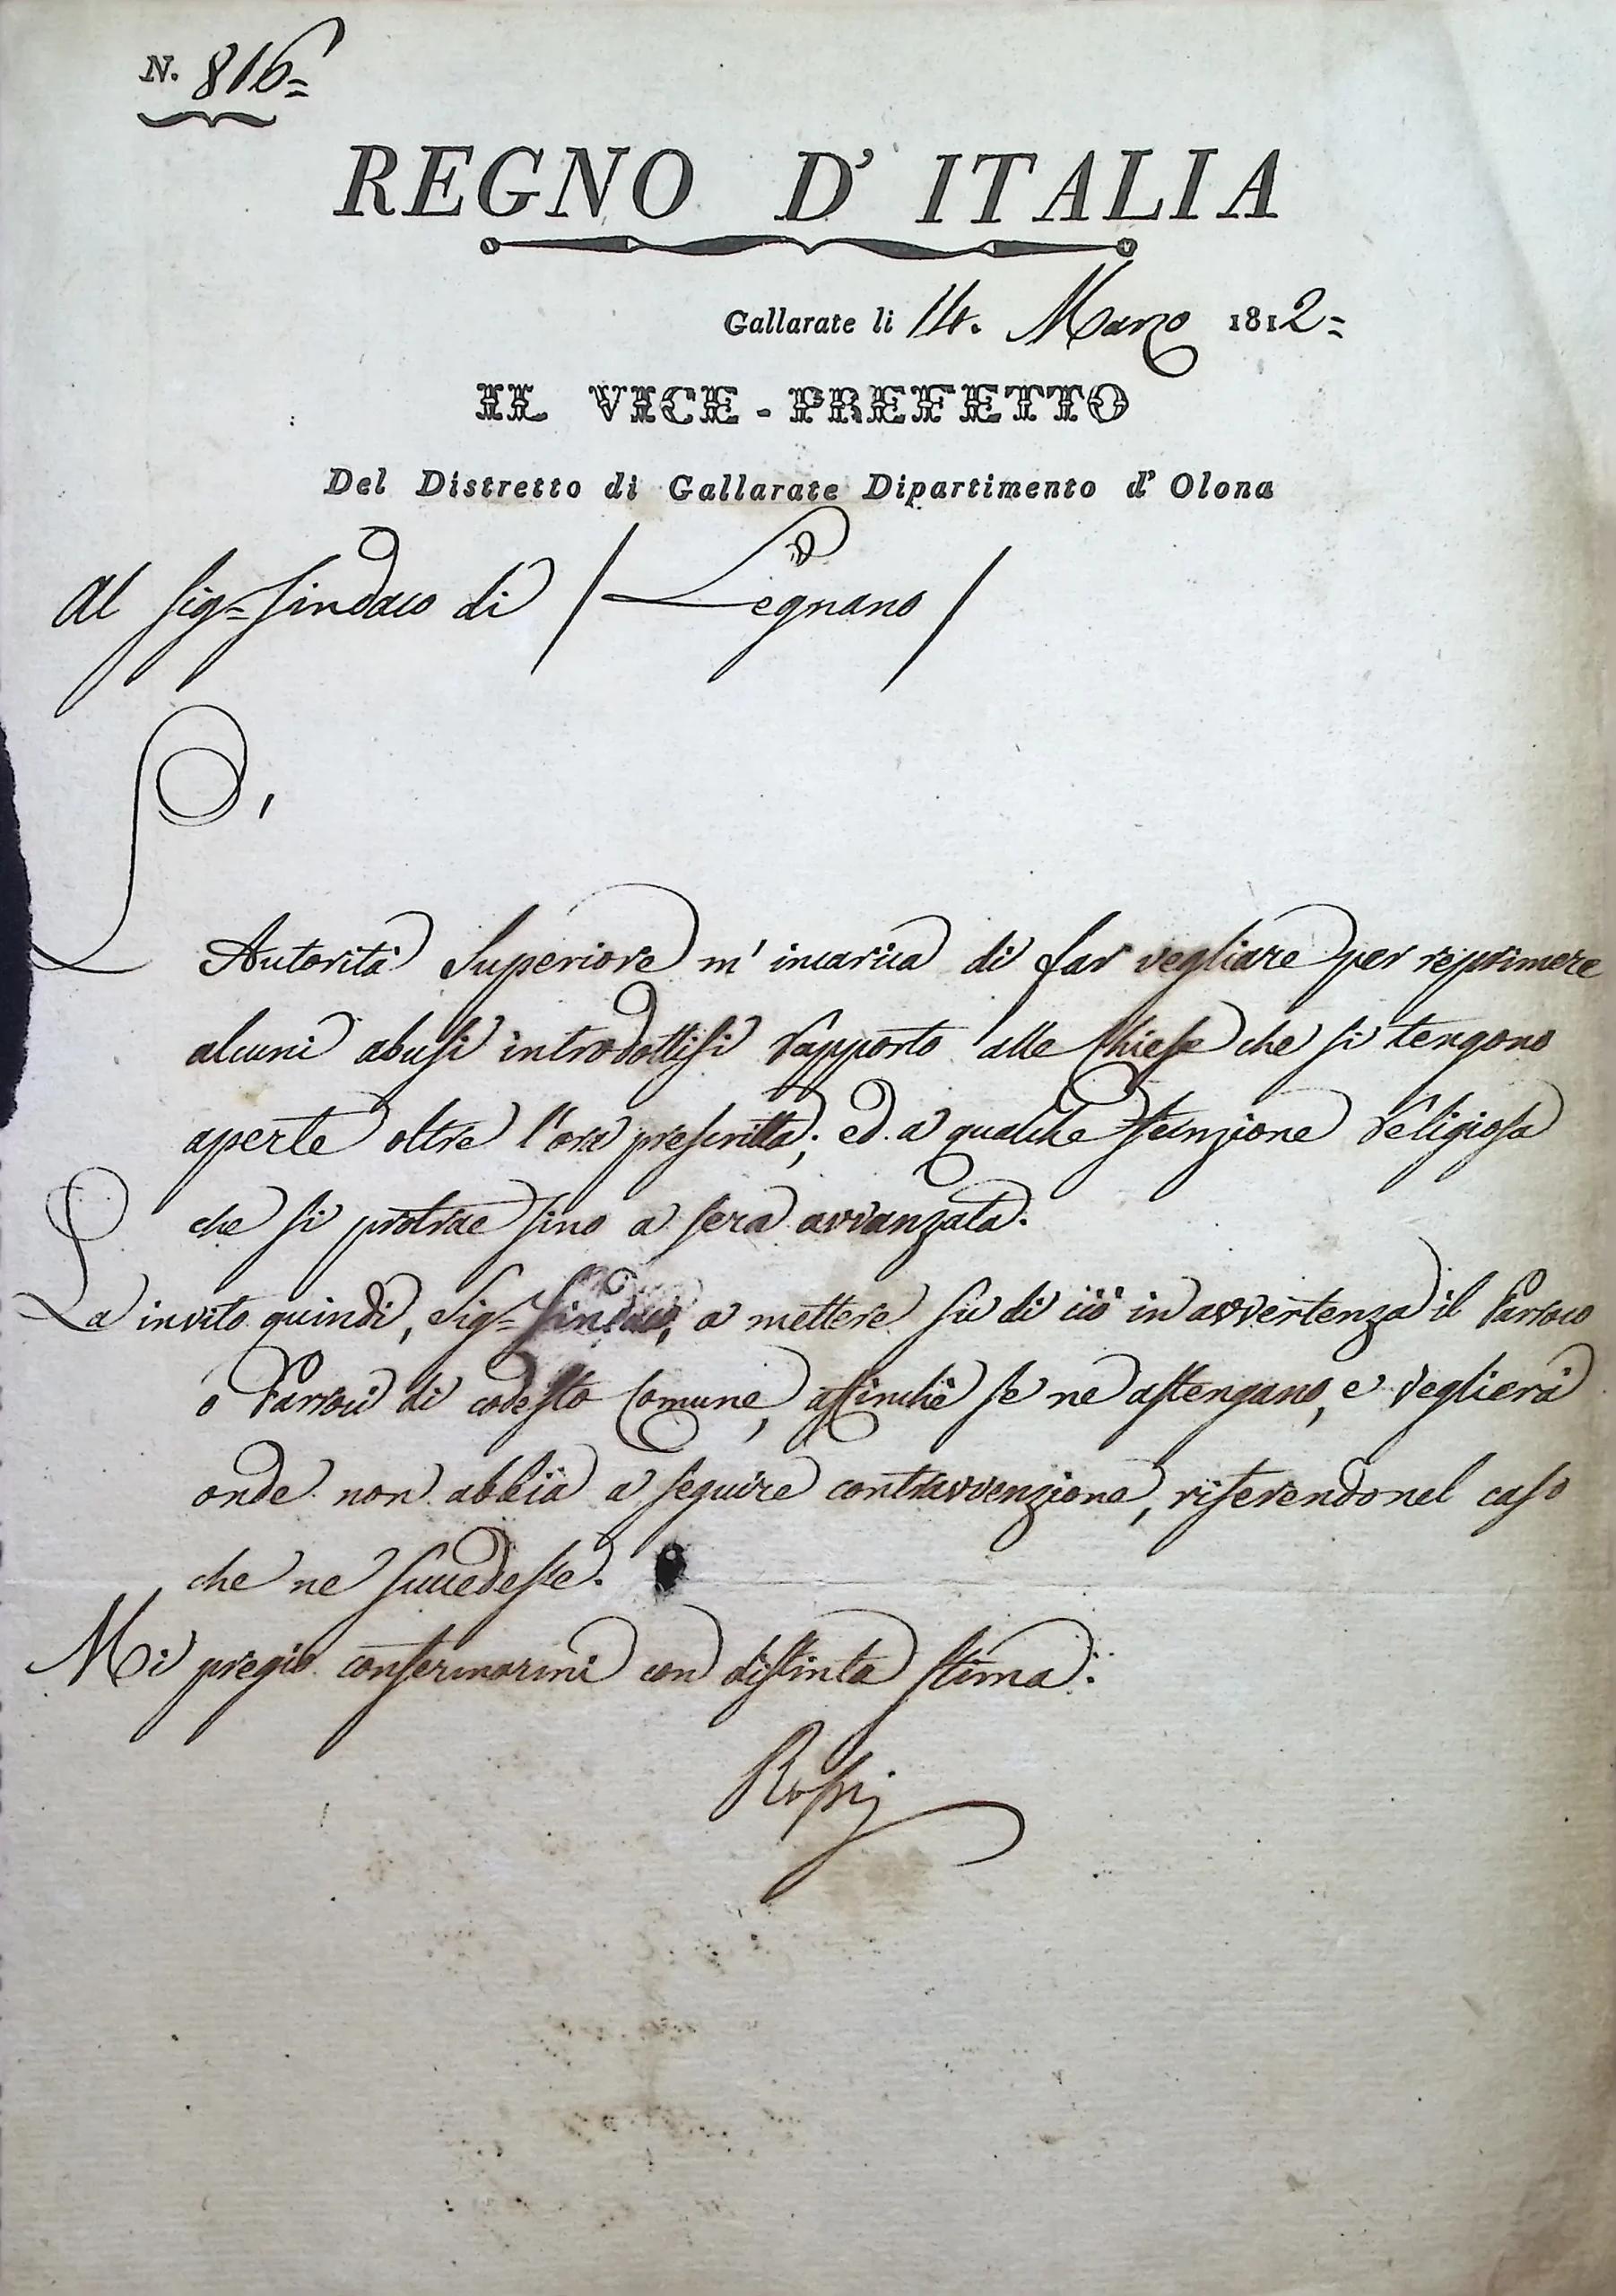 N. 816=
REGNO D' ITALIA
Gallarate li 14. Marzo 1812=
IL VICE-PREFETTO
Del Distretto di Gallarate Dipartimento d' Olona
Al Sig= Sindaco di / Legnano /
L'
Autorità Superiore m' incarica di far vegliare per reprimere
alcuni abusi introdottisi rapporto alle Chiese che si tengono
aperte oltre l'ora prescritta; ed a qualche funzione religiosa
che si protrae sino a sera avvanzata.
La invito quindi, Sig= Sindaco, a mettere sù di ciò in avvertenza il Parroco
o Parroci di codesto Comune, affinchè se ne astengano, e veglierà
onde non abbia a seguire contravvenzione, riferendo nel caso
che ne succedesse.
Mi pregio confermarmi con distinta stima.
Rossi